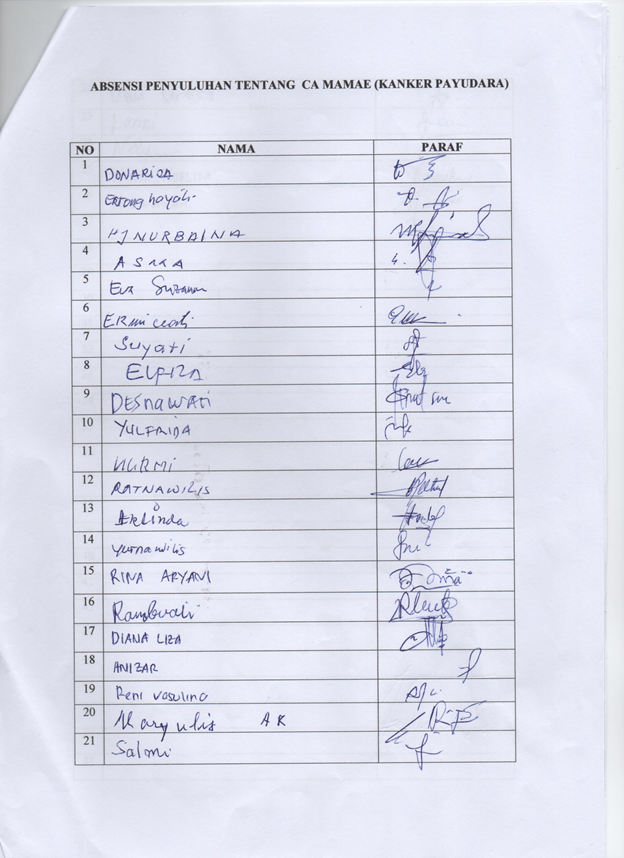 ABSENSI PENYULUHAN TENTANG CA MAMAE (KANKER PAYUDARA)
NO NAMA PARAF
1 DONARIZA
2
3 HJ NURBAINA
4 ASMA
5 Eva Suzanna
6 ERmi
7 Suyati
8 ELFIZA
9 DESNAWATI
10 YULFRIDA
11 NURMI
12 RATNAWILIS
13
14 yurnawilis
15 RINA ARYANI
16
17 DIANA LIZA
18 ANIZAR
19 Reni
20 Maryulis AR
21 Salmi